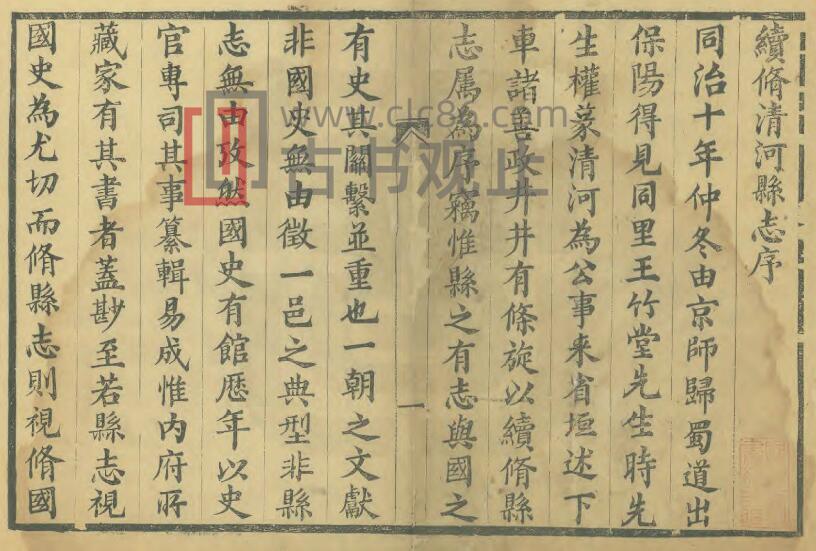 續脩清河縣志序
同治十年仲冬由京師歸蜀道出
保陽得見同里王竹堂先生時先
生權篆清河為公事来省垣述下
車諸善政井井有條旋以續脩縣
志属為序竊惟縣之有志與國之
一
有史其關繫並重也一朝之文獻
非國史無由徵一邑之典型非縣
志無由攷然國史有館歷年以史
官専司其事纂輯易成惟内府所
藏家有其書者蓋尠至若縣志視
國史為尤切而脩縣志則視脩國
www.clc8a.com
古书观止